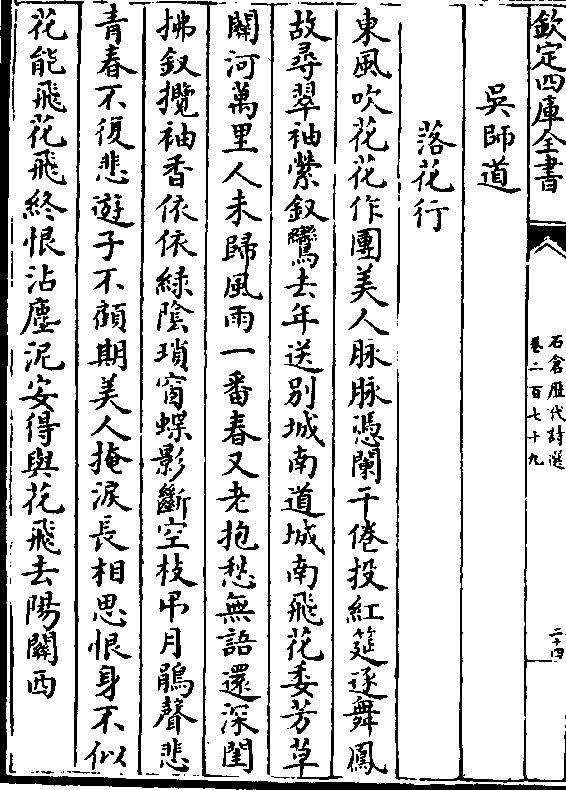 欽定四庫全書
石倉歷代詩選
卷二百七十九
二十四
吳師道
落花行
東風吹花花作團美人脉脉憑闌干倦投紅筵逐舞鳳
故尋翠袖縈釵鸞去年送別城南道城南飛花委芳草
關河萬里人未歸風雨一番春又老抱愁無語還深閨
拂釵攬袖香依依綠陰瑣窗蝶影斷空枝弔月鵑聲悲
青春不復悲遊子不顧期美人掩淚長相思恨身不似
花能飛花飛終恨沾塵泥安得與花飛去陽關西